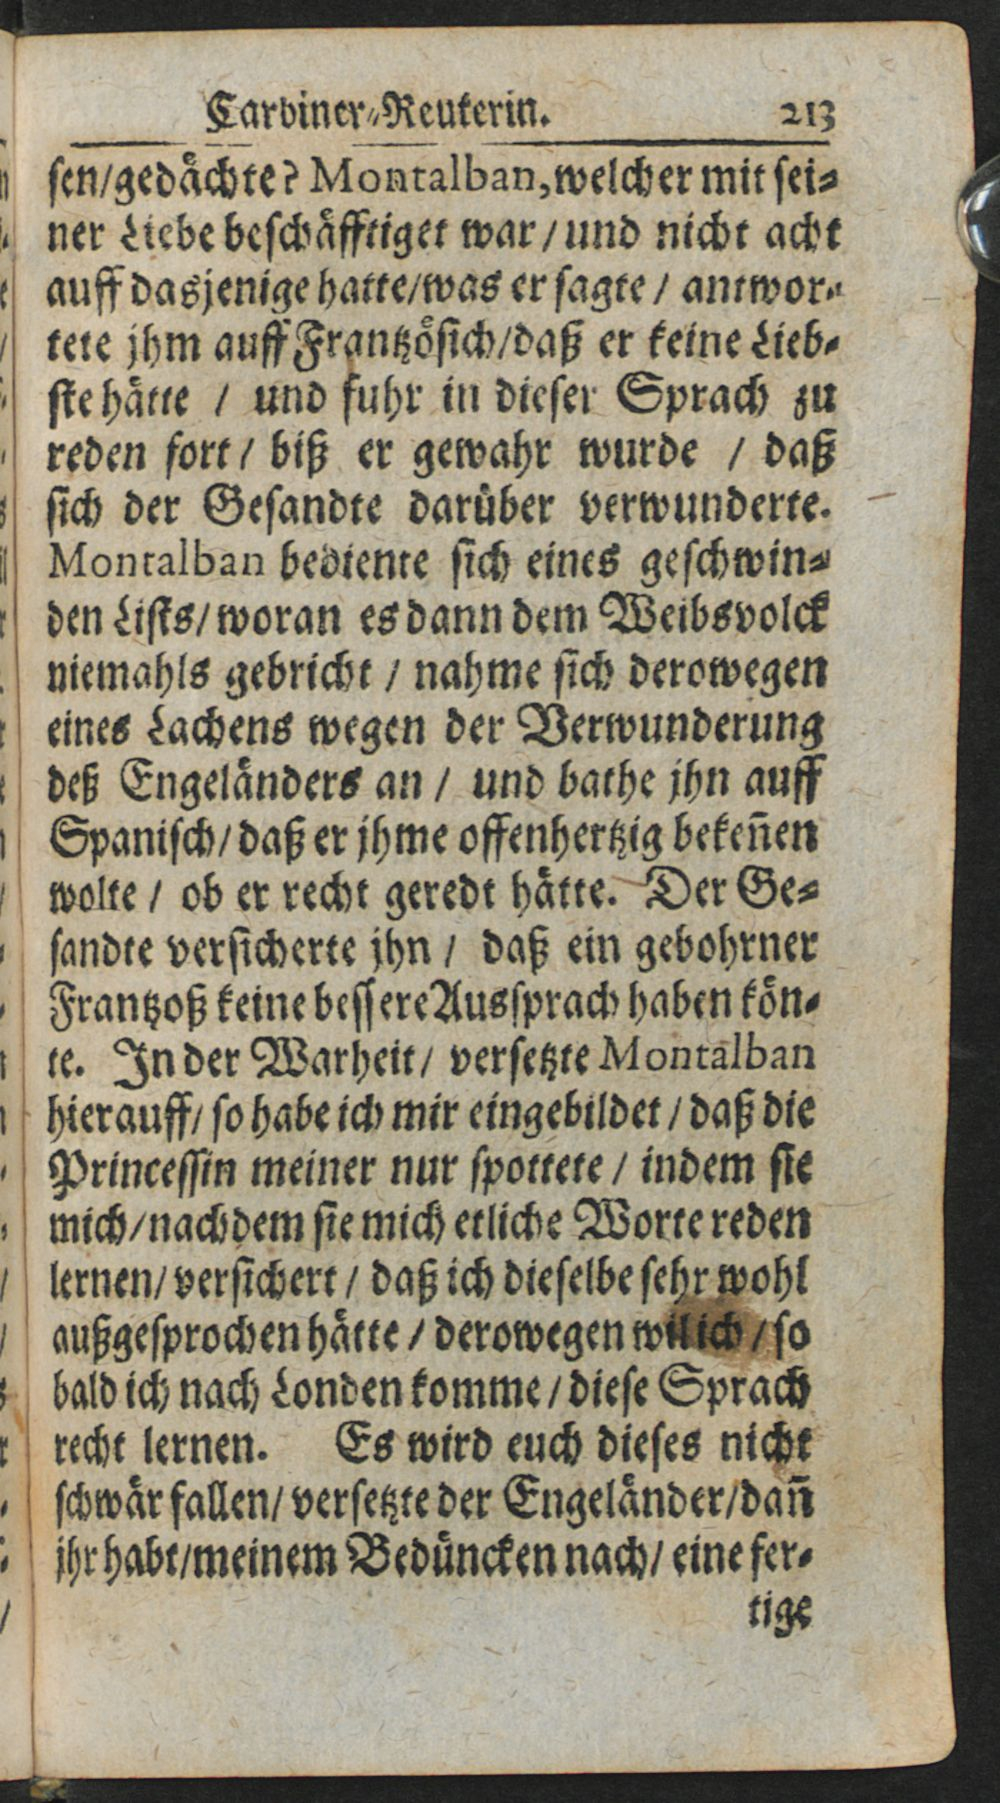 Carbiner-Reuterin. 213
sen/gedächte? Montalban, welcher mit sei-
ner Liebe beschäfftiget war / und nicht acht
auff dasjenige hatte/was er sagte / antwor-
tete jhm auff Frantzösich/daß er keine Lieb-
ste hätte / und fuhr in dieser Sprach zu
reden fort / biß er gewahr wurde / daß
sich der Gesandte darüber verwunderte.
Montalban bediente sich eines geschwin-
den Lists/ woran es dann dem Weibsvolck
niemahls gebricht / nahme sich derowegen
eines Lachens wegen der Verwunderung
deß Engeländers an / und bathe jhn auff
Spanisch/ daß er jhme offenhertzig bekeñen
wolte / ob er recht geredt hätte. Der Ge-
sandte versicherte jhn / daß ein gebohrner
Frantzoß keine bessere Aussprach haben kön-
te. In der Warheit/ versetzte Montalban
hierauff/ so habe ich mir eingebildet / daß die
Princessin meiner nur spottete / indem sie
mich/nachdem sie mich etliche Worte reden
lernen/ versichert / daß ich dieselbe sehr wohl
außgesprochen hätte / derowegen wil ich / so
bald ich nach Londen komme / diese Sprach
recht lernen. Es wird euch dieses nicht
schwär fallen/ versetzte der Engeländer/dañ
jhr habt/meinem Bedüncken nach/ eine fer-
tige